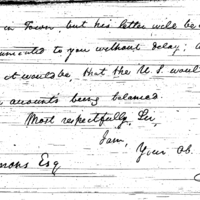 in Town, but his letter will be
umented to you without delay;
it would be, that the U. S. woul
amounts being balanced.
Most respectfully, Sir,
I am,
Your Ob.
mons Esq